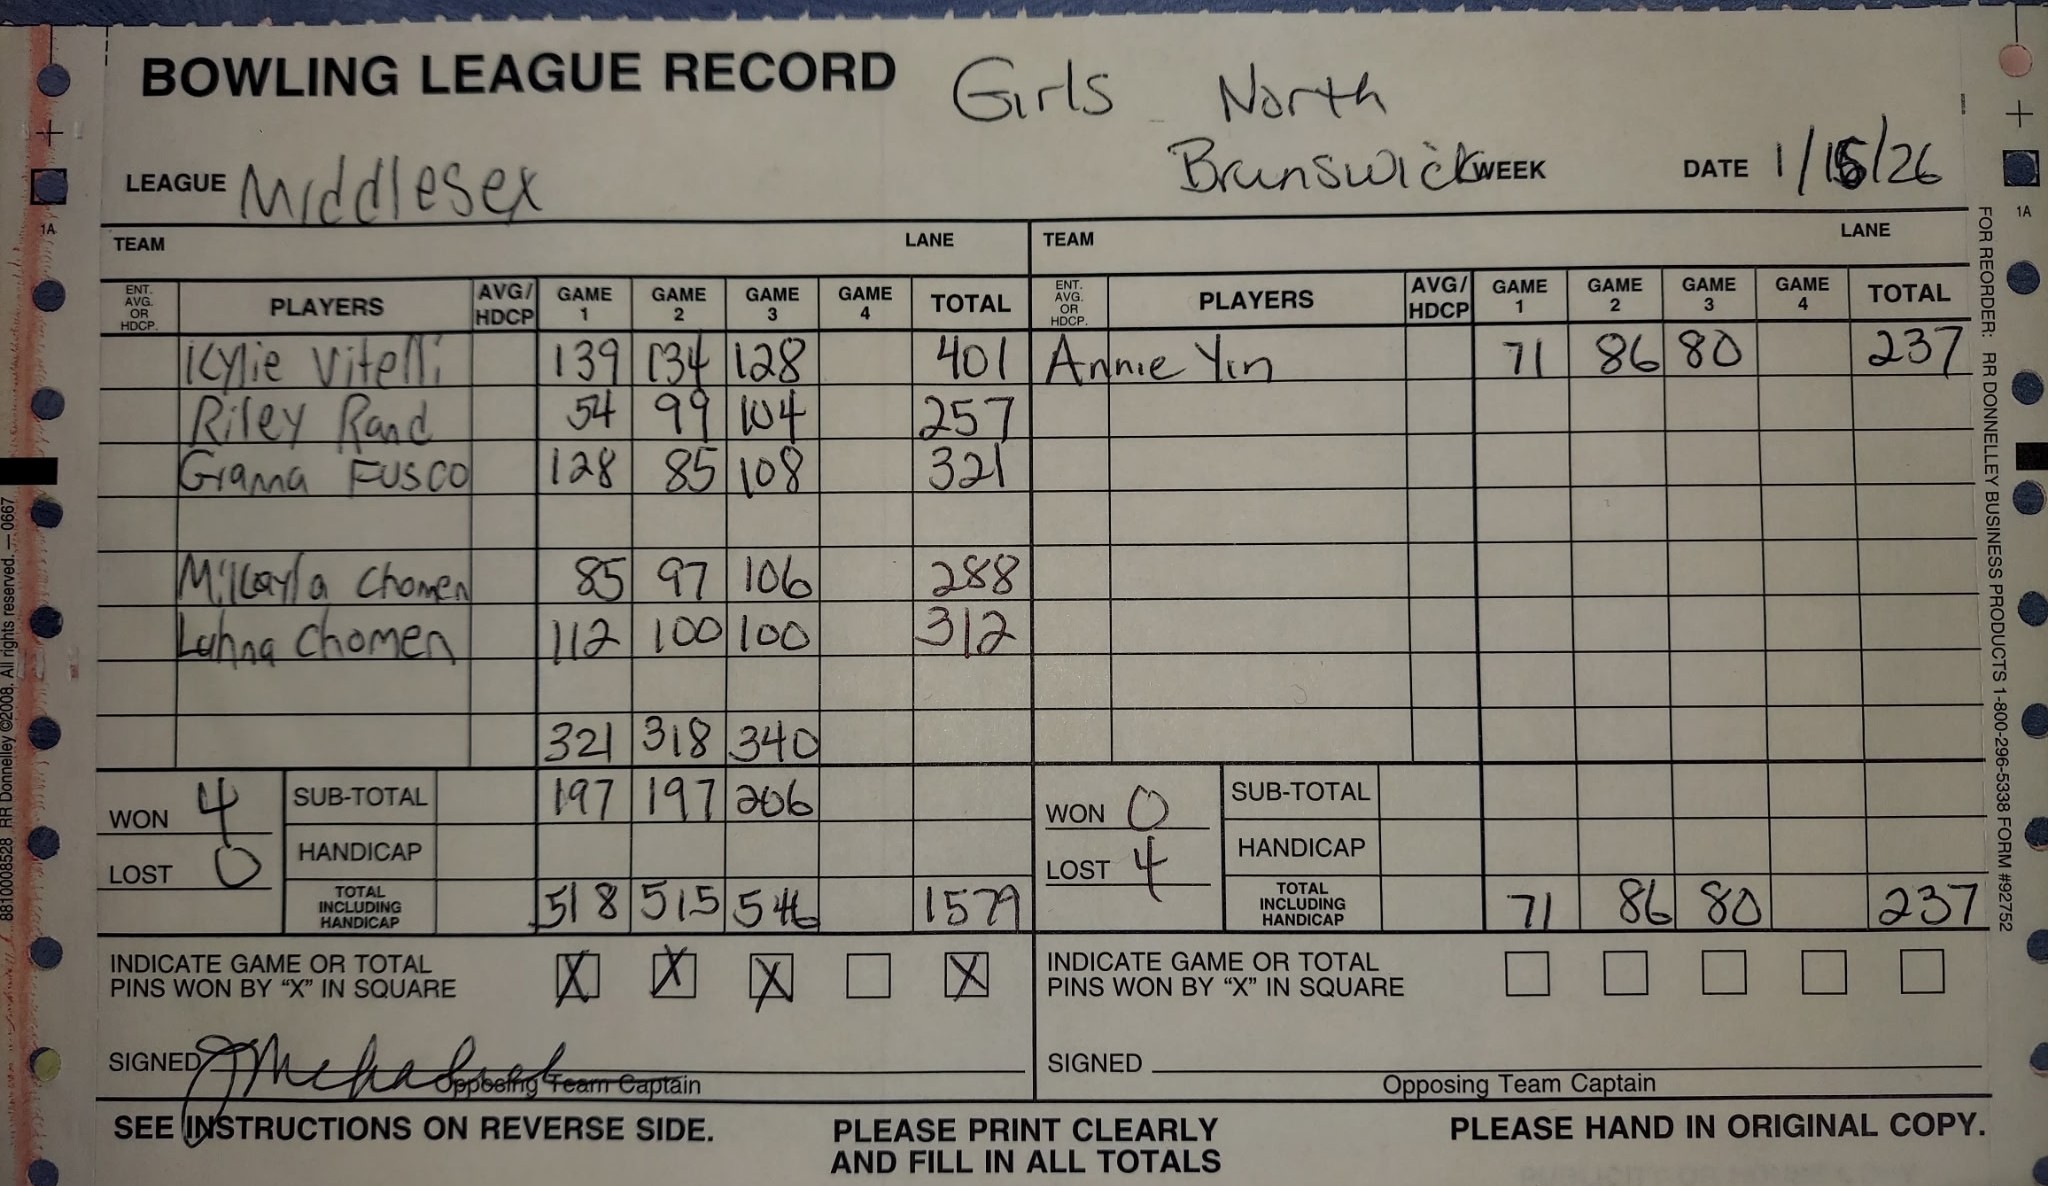 BOWLING LEAGUE RECORD Girls North
LEAGUE Middlesex Brunswick WEEK DATE 1/15/26
TEAM LANE TEAM LANE
ENT. AVG. OR HDCP. PLAYERS AVG/ HDCP GAME 1 GAME 2 GAME 3 GAME 4 TOTAL ENT. AVG. OR HDCP. PLAYERS AVG/ HDCP GAME 1 GAME 2 GAME 3 GAME 4 TOTAL
Kylie Vitelli 139 134 128 401 Annie Yin 71 86 80 237
Riley Rand 54 99 104 257
Gianna Fusco 128 85 108 321
Mikayla Chomen 85 97 106 288
Lahna Chomen 112 100 100 312
321 318 340
WON 4 SUB-TOTAL 197 197 206 WON 0 SUB-TOTAL
LOST 0 HANDICAP LOST 4 HANDICAP
TOTAL INCLUDING HANDICAP 518 515 546 1579 TOTAL INCLUDING HANDICAP 71 86 80 237
INDICATE GAME OR TOTAL INDICATE GAME OR TOTAL
PINS WON BY "X" IN SQUARE X X X X PINS WON BY "X" IN SQUARE
SIGNED SIGNED
Opposing Team Captain Opposing Team Captain
SEE INSTRUCTIONS ON REVERSE SIDE. PLEASE PRINT CLEARLY PLEASE HAND IN ORIGINAL COPY.
AND FILL IN ALL TOTALS
1A
1A
8810008528 RR Donnelley ©2008. All rights reserved. — 0667
FOR REORDER: RR DONNELLEY BUSINESS PRODUCTS 1-800-296-5338 FORM #92752